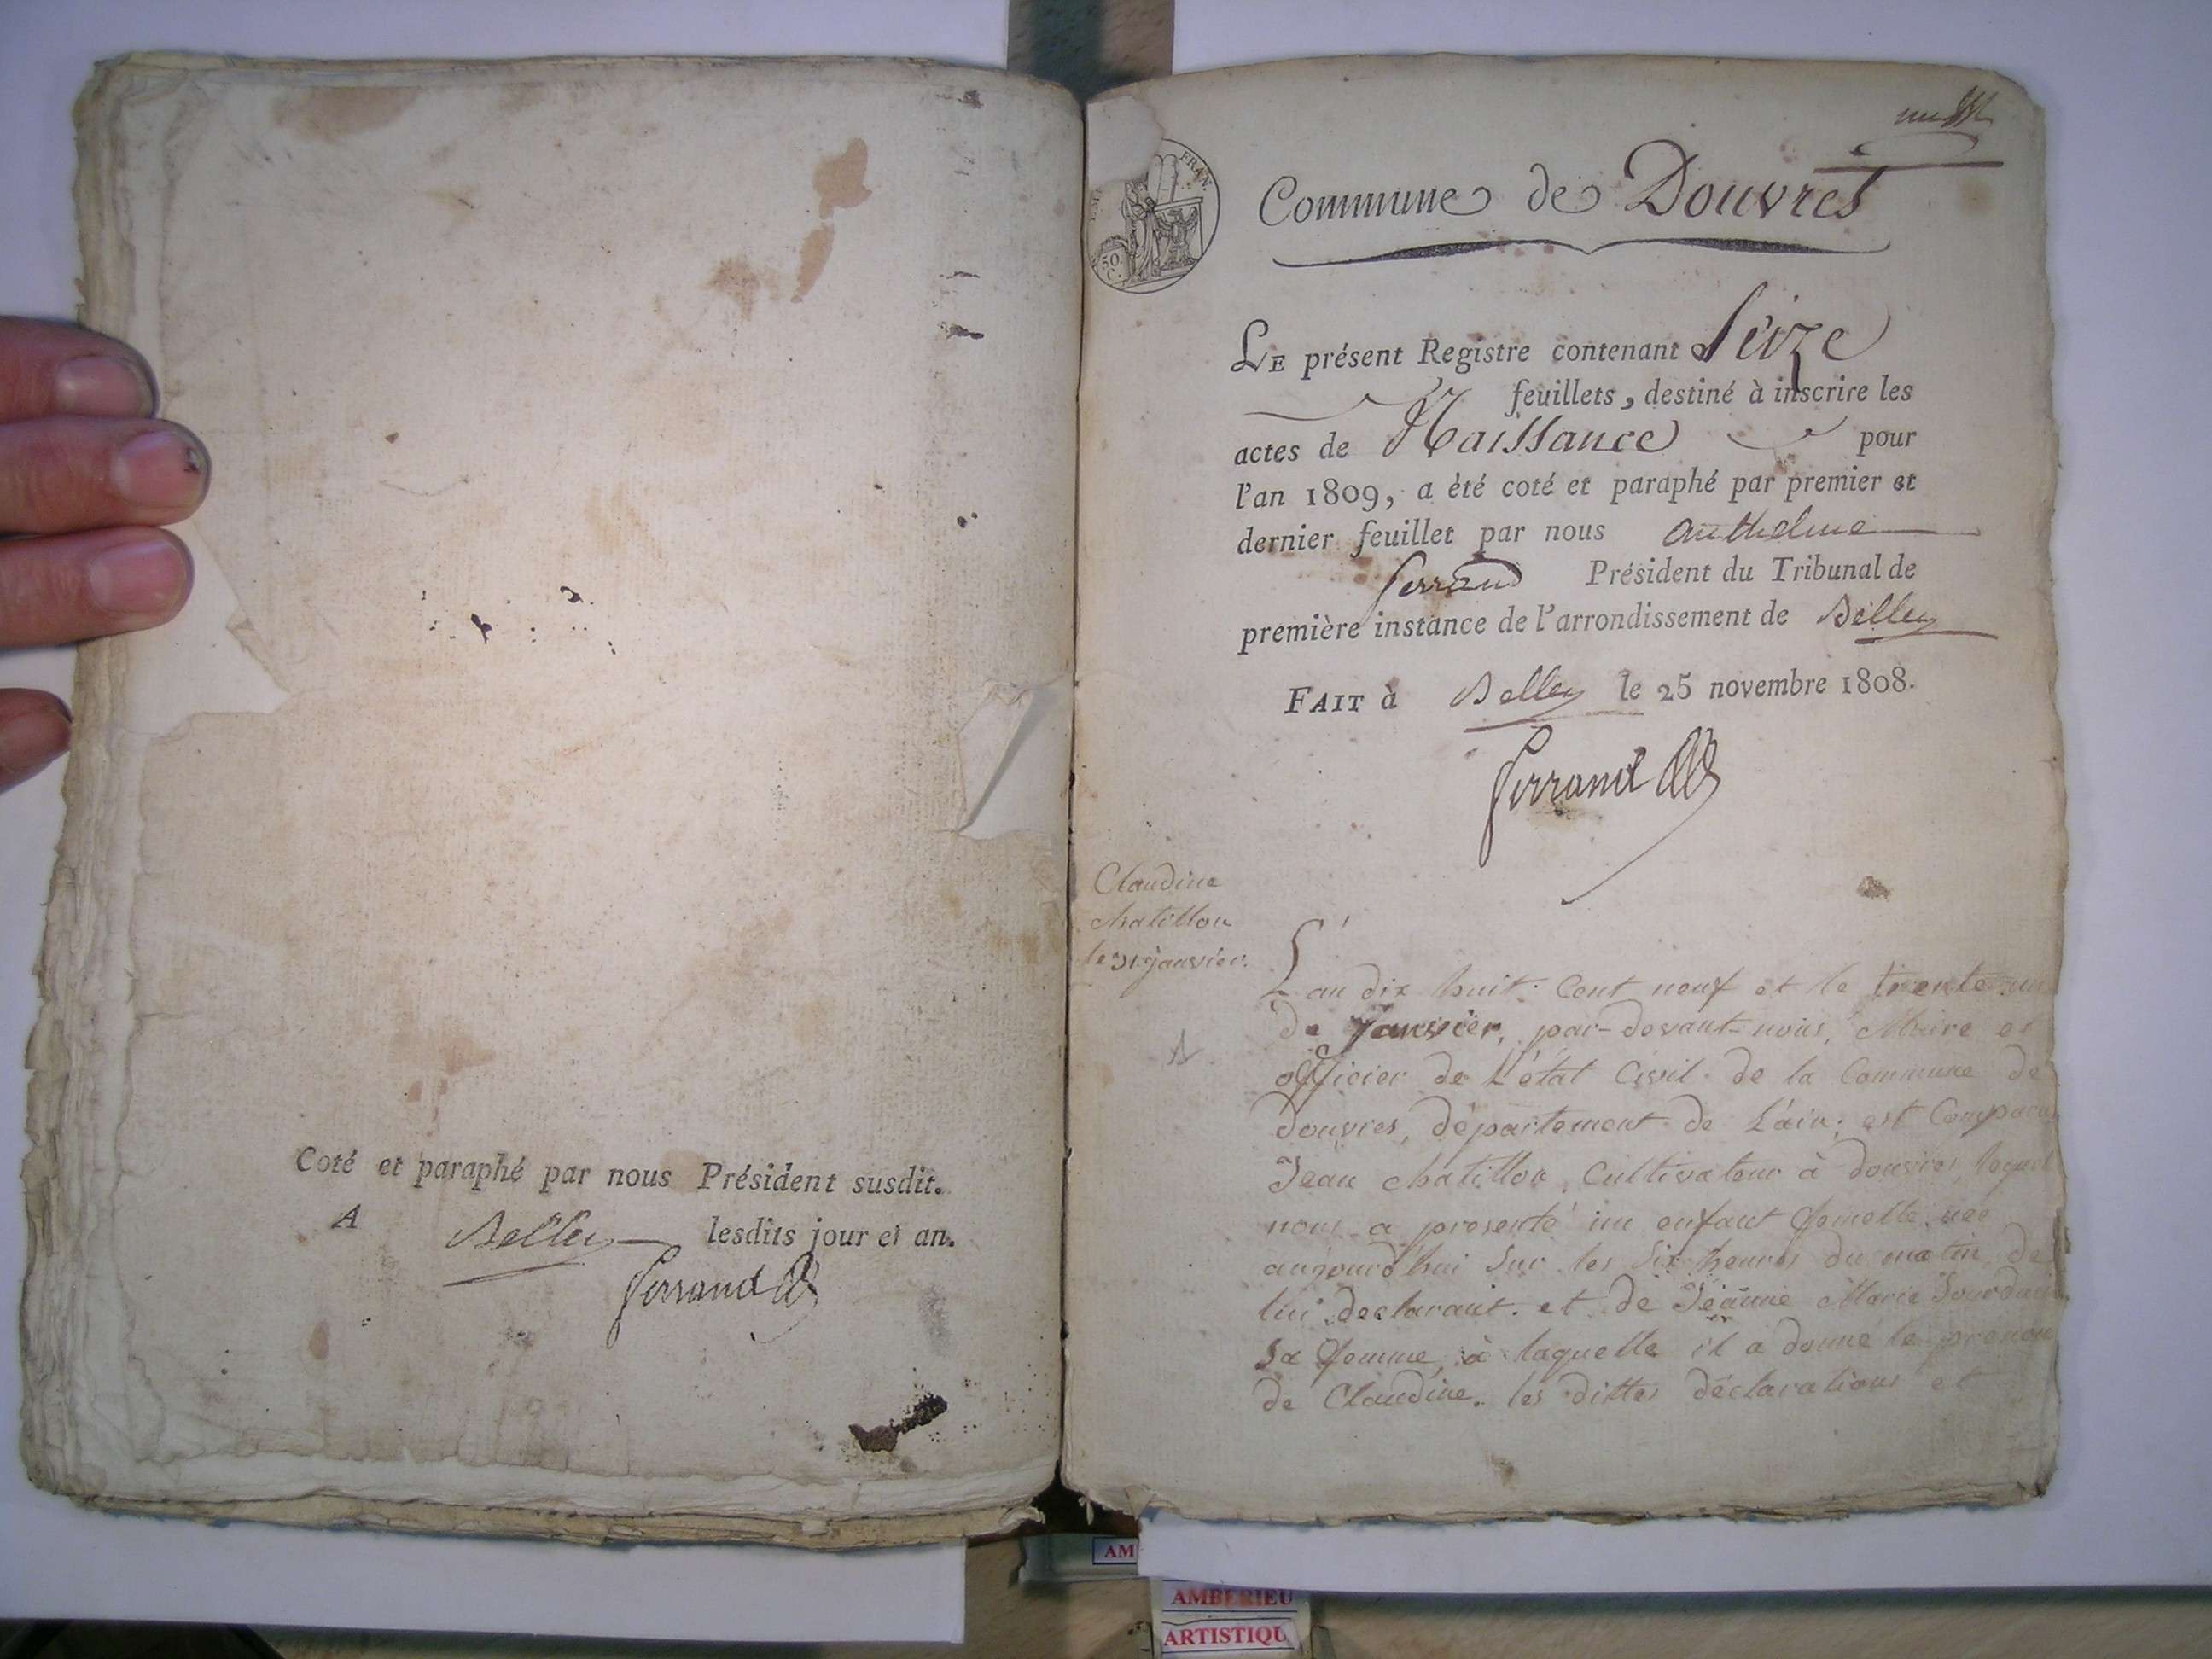 Coté et paraphé par nous Président susdit.
A Belley lesdits jour et an.
Ferrand
FRAN.
50.
C.
Commune de Douvres
LE présent Registre contenant Seize
feuillets, destiné à inscrire les
actes de Naissance pour
l'an 1809, a été coté et paraphé par premier et
dernier feuillet par nous anthelme
ferrand Président du Tribunal de
première instance de l'arrondissement de Belley
FAIT à Belley le 25 novembre 1808.
Ferrand
Claudine
chatillon
le 31 janvier.
L'an dix huit Cent neuf et le trente un
de Janvier, par-devant-nous, Maire et
officier de L'état Civil de la Commune de
Douvres, département de L'ain; est Comparu
Jean chatillon, Cultivateur à douvres, lequel
nous a presenté un enfant femelle née
aujourd'hui sur les six heures du matin, de
lui declarant. et de Jeanne Marie Jourdain
sa femme, à laquelle il a donné le prenom
de Claudine. les dittes déclarations et
AM
AMBERIEU
ARTISTIQU